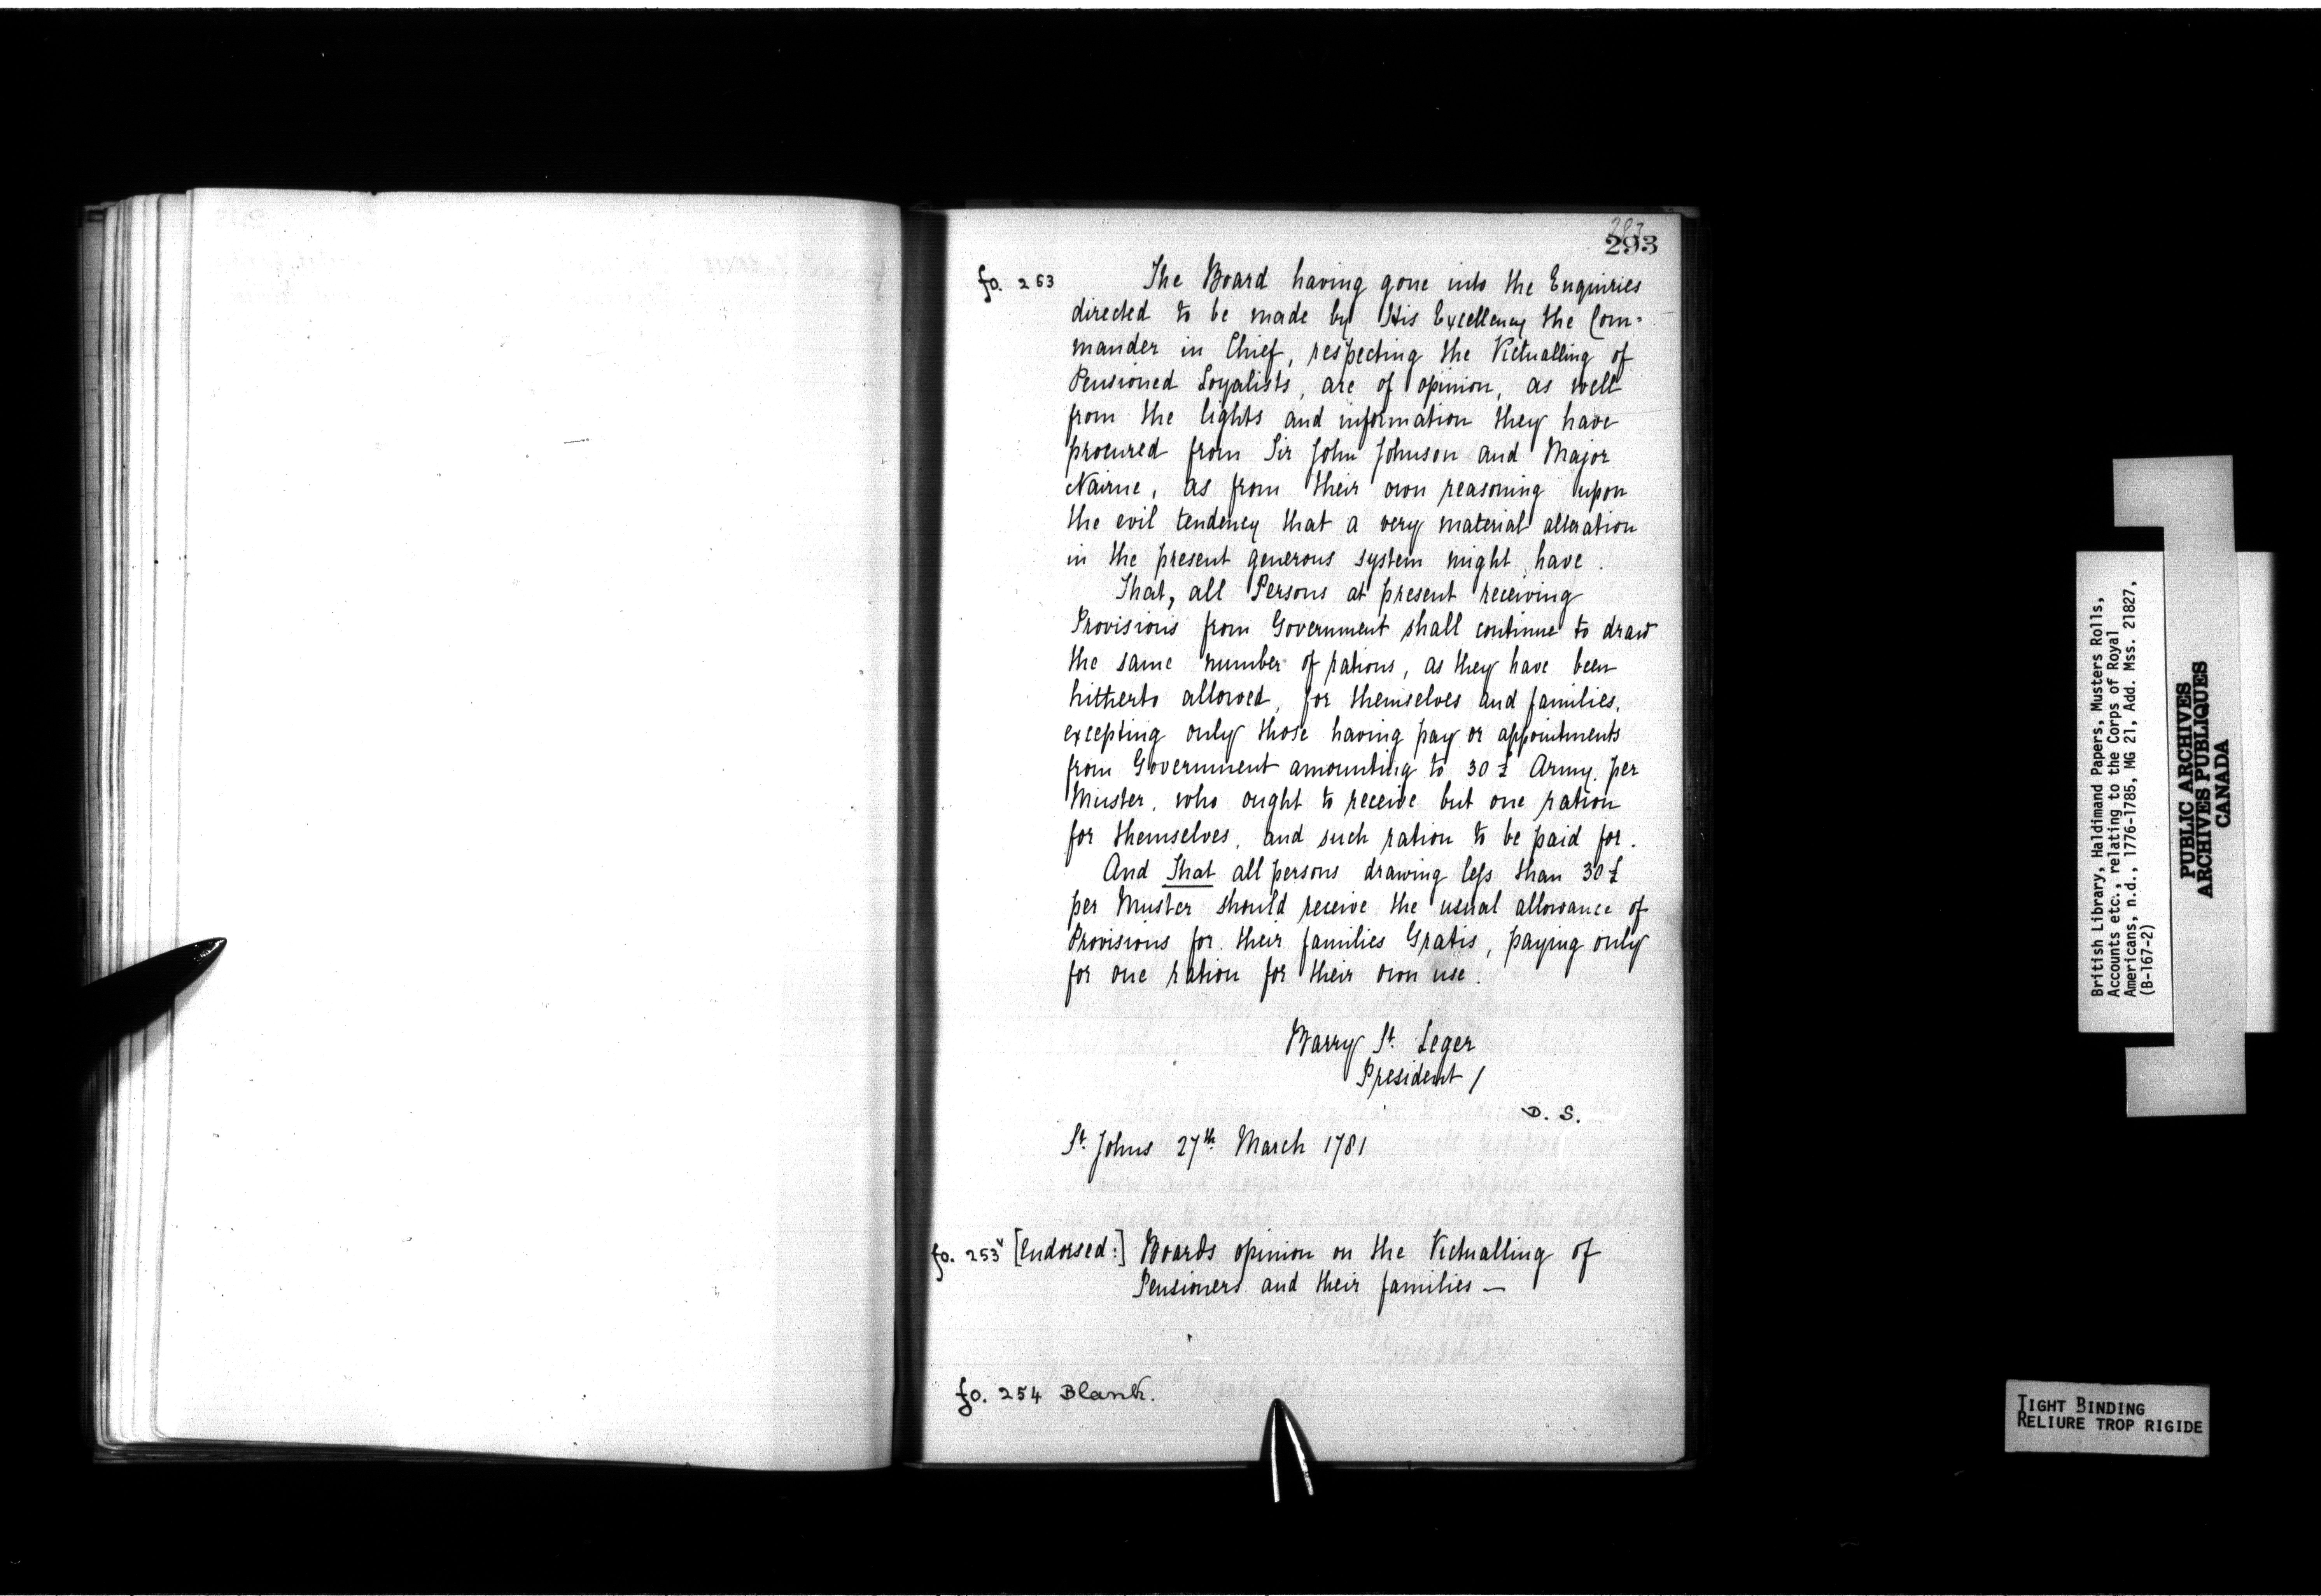 293
293
fo. 253 The Board having gone into the Enquiries
directed to be made by His Excellency the Com=
mander in Chief, respecting the Victualling of
Pensioned Loyalists, are of opinion, as well
from the lights and information they have
procured from Sir John Johnson and Major
Nairne, as from their own reasoning upon
the evil tendency that a very material alteration
in the present generous system might have.
That, all Persons at present receiving
Provisions from Government shall continue to draw
the same number of rations, as they have been
hitherto allowed, for themselves and families,
excepting only those having pay or appointments
from Government amounting to 30 £ Army per
Muster, who ought to receive but one ration
for themselves, and such ration to be paid for.
And That all persons drawing less than 30 £
per Muster should receive the usual allowance of
Provisions for their families Gratis, paying only
for one ration for their own use.
Barry St. Leger
President /
D. S.
St. Johns 27th March 1781
fo. 253v [Endorsed:] Boards opinion on the Victualling of
Pensioners and their families —
fo. 254 Blank.
British Library, Haldimand Papers, Musters Rolls,
Accounts etc., relating to the Corps of Royal
Americans, n.d., 1776-1785, MG 21, Add. Mss. 21827,
(B-167-2)
PUBLIC ARCHIVES
ARCHIVES PUBLIQUES
CANADA
TIGHT BINDING
RELIURE TROP RIGIDE